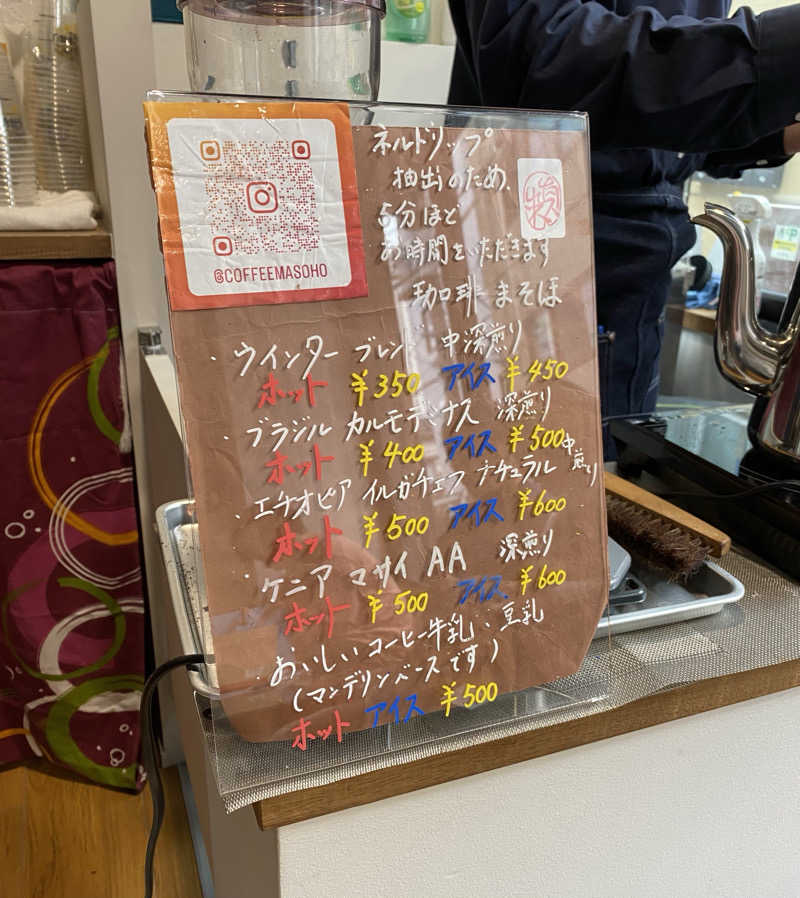 @COFFEEMASOHO
ネルドリップ
抽出のため、
5分ほど
お時間をいただきます
珈琲まそほ
・ウインターブレンド 中深煎り
ホット ¥350 アイス ¥450
・ブラジル カルモデミナス 深煎り
ホット ¥400 アイス ¥500
・エチオピア イルガチェフ ナチュラル 中煎り
ホット ¥500 アイス ¥600
・ケニア マサイ AA 深煎り
ホット ¥500 アイス ¥600
・おいしいコーヒー牛乳、豆乳
(マンデリンベースです)
ホット アイス ¥500